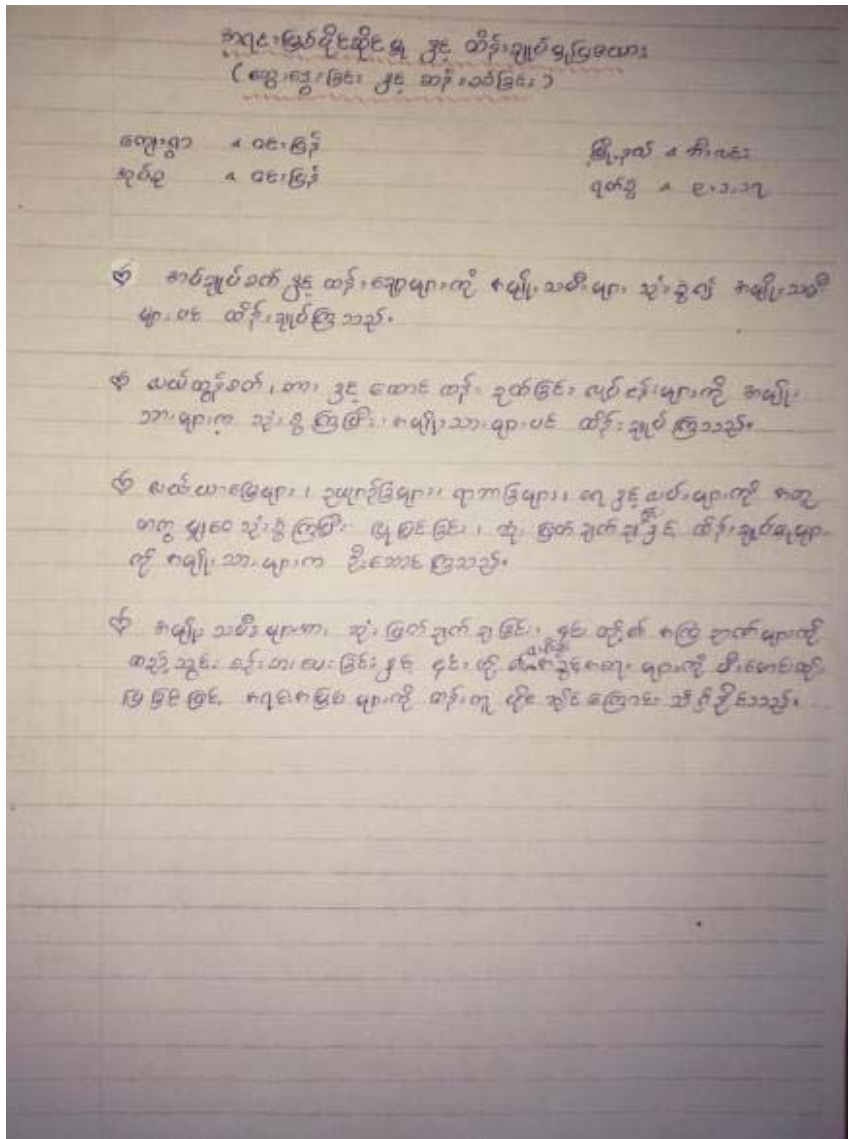 အရင်းမြစ်ပိုင်ဆိုင်မှု နှင့် ထိန်းချုပ်မှုပြဇယား
(ဆွေးနွေးခြင်း နှင့် ဆန်းစစ်ခြင်း)
ကျေးရွာ - ဝင်းမြန်
မြို့နယ် - ဘီးလင်း
အုပ်စု - ဝင်းမြန်
ရက်စွဲ - ၉.၁.၁၇
အပ်ချုပ်စက် နှင့် ထန်းချောများကို အမျိုးသမီးများ သုံးစွဲ၍ အမျိုးသမီး
များပင် ထိန်းချုပ်ကြသည်။
လယ်ထွန်စက်၊ တား နှင့် ထောင် ထန်း ခုတ်ခြင်း လုပ်ငန်းများကို အမျိုး
သားများက သုံးစွဲကြပြီး၊ အမျိုးသားများပင် ထိန်းချုပ်ကြသည်။
လယ်ယာမြေများ၊ ဥယျာဉ်ခြံများ၊ ရာဘာခြံများ၊ ရေ နှင့် လမ်းများကို အတူ
တကွ မျှဝေ သုံးစွဲကြပြီး ပြုပြင်ခြင်း၊ ဆုံးဖြတ်ချက်ချ နှင့် ထိန်းချုပ်မှုများ
ကို အမျိုးသားများက ဦးဆောင်ကြသည်။
အမျိုးသမီးများအား ဆုံးဖြတ်ချက်ချခြင်း၊ ၎င်းတို့၏ အကြံဉာဏ်များကို
ထည့်သွင်း စဉ်းစားပေးခြင်း နှင့် ၎င်းတို့၏ အခွင့်အရေး များကို မီးမောင်းထိုး
ပြခြင်းဖြင့် အရင်းအမြစ်များကို တန်းတူ ပိုင်ဆိုင်ကြောင်း သိရှိနိုင်သည်။